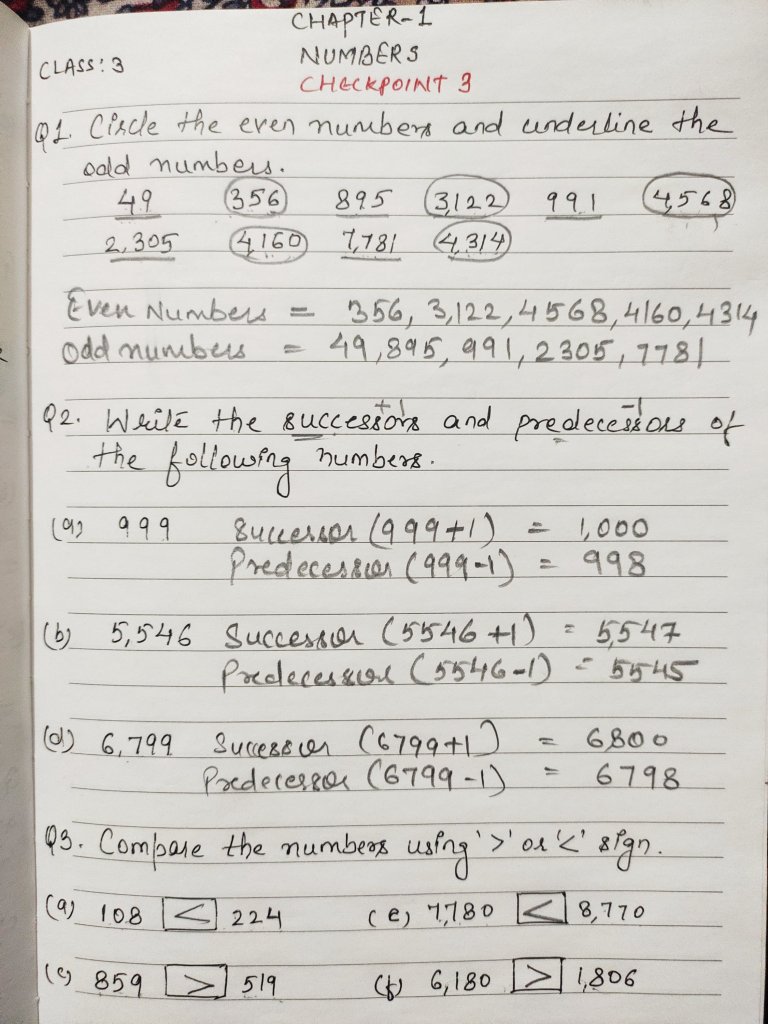 CHAPTER-1
NUMBERS
CLASS: 3
CHECKPOINT 3
Q1. Circle the even numbers and underline the
odd numbers.
49 356 895 3,122 991 4,568
2,305 4,160 7,781 4,314
Even Numbers = 356, 3,122, 4568, 4160, 4314
Odd numbers = 49, 895, 991, 2305, 7781
+1 -1
Q2. Write the successors and predecessors of
the following numbers.
(a) 999 Successor (999+1) = 1,000
Predecessor (999-1) = 998
(b) 5,546 Successor (5546+1) = 5,547
Predecessor (5546-1) = 5545
(d) 6,799 Sucessor (6799+1) = 6800
Predecessor (6799-1) = 6798
Q3. Compare the numbers using '>' or '<' sign.
(a) 108 < 224 (e) 7,780 < 8,770
(c) 859 > 519 (f) 6,180 > 1,806